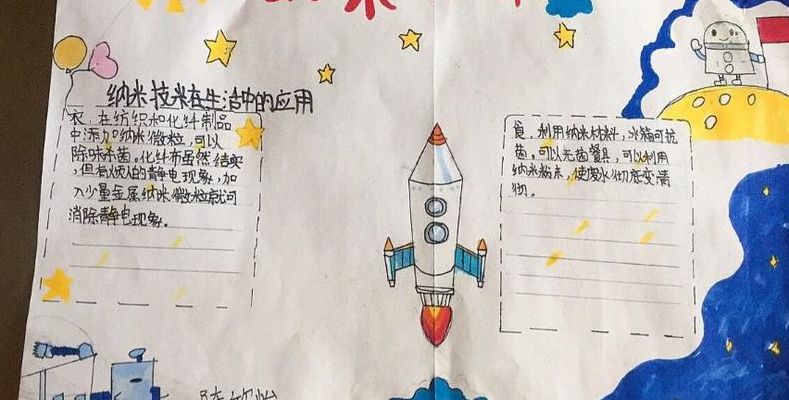 纳米技米在生活中的应用
衣，在纺织和化纤制品
中添加纳米微粒，可以
除味杀菌。化纤布虽然结实
，但有烦人的静电现象，加
入少量金属纳米微粒就可
消除静电现象。
食，利用纳米材料，冰箱可抗
菌。可以无菌餐具，可以利用
纳米粉末，使废水彻底变清
彻。